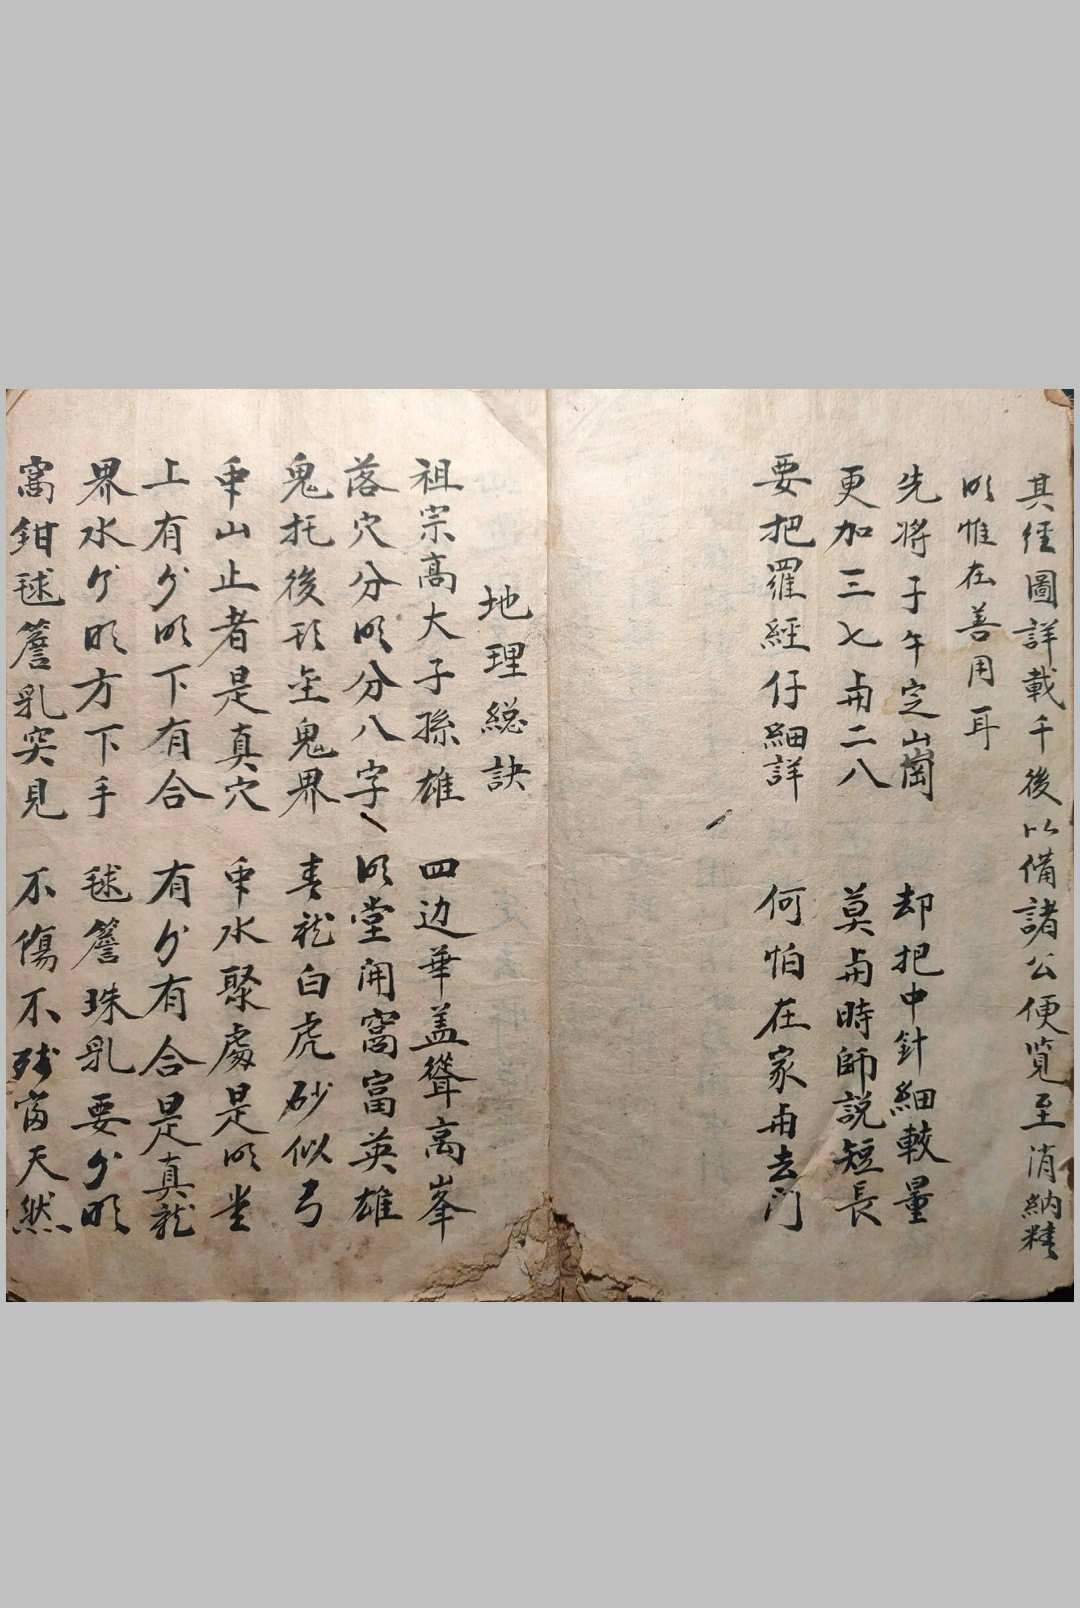 其徑圖詳載千後以備諸公便覧至消納精
明惟在善用耳
先將子午定山崗 却把中針細較量
更加三七與二八 莫與時師說短長
要把羅經仔細詳 何怕在家與去门
地理総訣
祖宗高大子孫雄 四边華盖聳高峯
落穴分明分八字 明堂開窩富英雄
鬼托後形金鬼界 青龍白虎砂似弓
來山止者是真穴 來水聚處是明堂
上有分明下有合 有分有合是真龍
界水分明方下手 毬簷珠乳要分明
窩鉗毬簷乳突見 不傷不残當天然